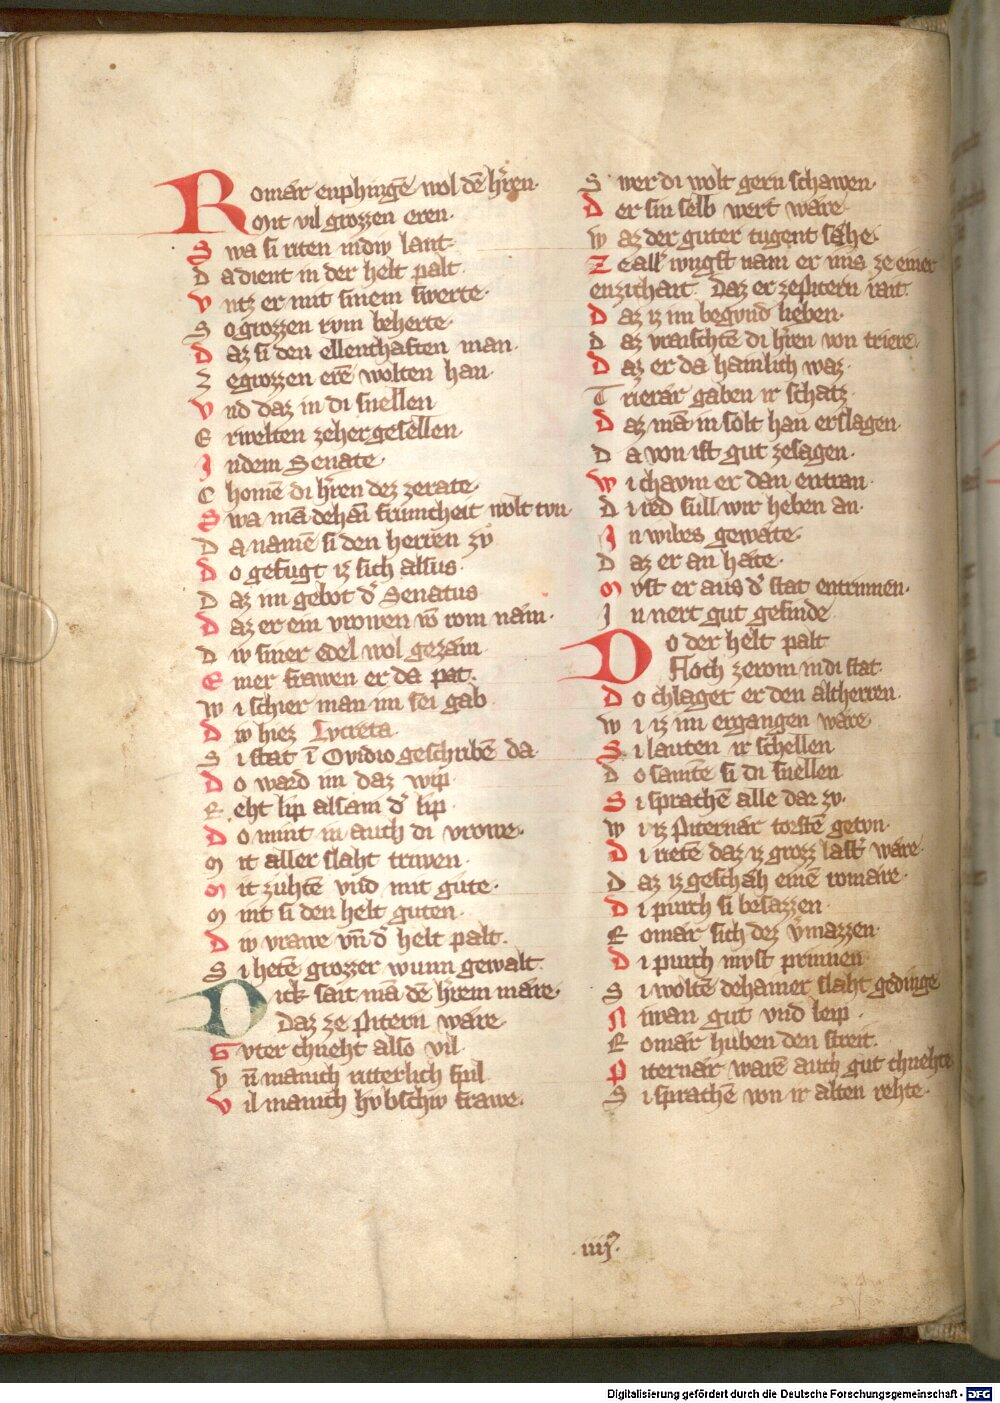 Romár enphingē wol dē hr̄ren·
Mit vil grozzen eren·
Swa si riten in diw lant·
Da dient in der helt palt·
Vntz er mit sinem swerte·
So grozzen rvm beherte·
Daz si den ellenthaften man·
Ze grozzen erē wolten han·
Vnd daz in di snellen
Erwelten ze hergesellen·
In dem Senate·
Chomē di hr̄ren dez ze rate·
Swa mā dehāi frumcheit wolt tvn·
Da namē si den herren zv
Do gefugt iz sich alsus·
Daz im gebot d᷑ Senatus
Daz er ein vrowen vō rom nám·
Diw siner edel wol gezám·
Einer frawen er da pat·
Wi schier man im sei gab·
Diw hiez Lvcreta·
Si stat ī Ovidio geschribē da·
Do ward im daz wip·
Reht lip alsam d᷑ lip·
Do mint in auch di vrowe·
Mit aller slaht triwen·
Mit zuhtē vnd mit gute·
Mint si den helt guten·
Diw vrawe vn̄ d᷑ helt palt·
Si hetē grozzer wunn gewalt·
Dick sait mā dē hr̄rem máre·
Daz ze Pitern wáre
Gvter chneht also vil·
Vn̄ manich ritterlich spil
Vil manich hvbschiw frawe·
Swer di wolt gern schawen·
Der sin selb wert wáre·
Waz der guter tugent sáhe·
Ze all᷑ iwngst nam er uns ze einer
enzichait· Daz er ze Pitern rait·
Daz iz im begvnd lieben·
Daz vraischtē di hr̄ren von triere·
Daz er da haimlich waz·
Trierár gaben ir schatz·
Daz mā in solt han erslagen·
Da von ist gut ze sagen·
Wi chavm er dan entran·
Di red sull wir heben an·
In wibes gewáte·
Daz er an háte·
Mvst er aus d᷑ stat entrinnen·
In nert gut gesinde·
Do der helt palt
Floch ze rom in di stat·
Do chlaget er den altherren·
Wi iz im ergangen wáre·
Si lauten ir schellen
Do samtē si di snellen
Si sprachē alle dar zv·
Wi iz Piternár torstē getvn·
Di rietē daz iz grozz last᷑ wáre·
Daz iz gescháh einē romáre·
Di purch si besazzen·
Romár sich dez v᷑mazzen·
Di purch mvst prinnen·
Si woltē dehainer slaht gedinge
Niwan gut vnd leip·
Romár huben den streit·
Piternár warē auch gut chnehte
Si sprachē von ir alten rehte·
·iiij᷒·
Digitalisierung gefördert durch die Deutsche Forschungsgemeinschaft - DFG